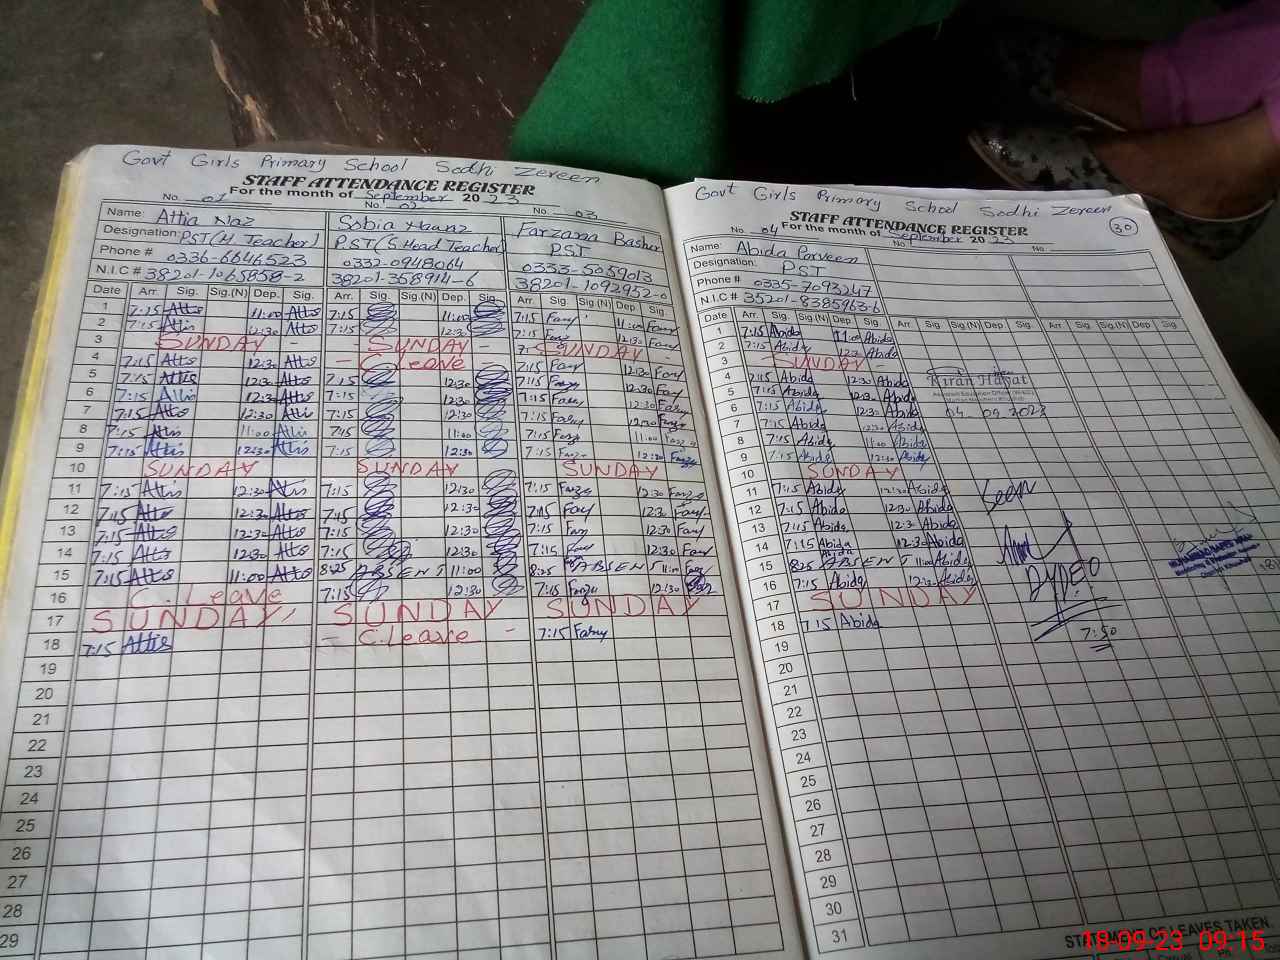 Govt Girls Primary School Sodhi Zereen
STAFF ATTENDANCE REGISTER
For the month of September 2023
No. 01 No. 02 No. 03
Name: Attia Naz Sobia Farzana Bashir
Designation: PST(H Teacher) PST(S Head Teacher) PST
Phone # 0336-6646523 0332-0948064 0333-5059013
N.I.C # 38201-1065858-2 38201-358914-6 38201-1092952-0
Date Arr. Sig. Sig.(N) Dep. Sig. Arr. Sig. Sig.(N) Dep. Sig. Arr. Sig. Sig(N) Dep Sig.
1 7:15 Attis 11:00 Attis 7:15 11:00 7:15 Fary 11:00 Fary
2 7:15 Attis 12:30 Attis 7:15 12:30 7:15 Fary 12:30 Fary
3 SUNDAY - - SUNDAY - SUNDAY -
4 7:15 Attis 12:30 Attis - C.Leave - 7:15 Fary 12:30 Fary
5 7:15 Attis 12:30 Attis 7:15 12:30 7:15 Fary 12:30 Fary
6 7:15 Attis 12:30 Attis 7:15 12:30 7:15 Fary 12:30 Fary
7 7:15 Attis 12:30 Attis 7:15 12:30 7:15 Fary 12:30 Fary
8 7:15 Attis 11:00 Attis 7:15 11:00 7:15 Farza 11:00 Farza
9 7:15 Attis 12:30 Attis 7:15 12:30 7:15 Farza 12:30 Farza
10 SUNDAY SUNDAY SUNDAY
11 7:15 Attis 12:30 Attis 7:15 12:30 7:15 Farza 12:30 Farza
12 7:15 Attis 12:30 Attis 7:15 12:30 7:15 Fary 12:30 Fary
13 7:15 Attis 12:30 Attis 7:15 12:30 7:15 Fary 12:30 Fary
14 7:15 Attis 12:30 Attis 7:15 12:30 7:15 Fary 12:30 Fary
15 7:15 Attis 11:00 Attis 8:25 ABSENT 11:00 8:25 ABSENT 11:00 Fary
16 C. Leave 7:15 12:30 7:15 Farza 12:30
17 SUNDAY SUNDAY SUNDAY
18 7:15 Attis - C.Leave - 7:15 Fary
19
20
21
22
23
24
25
26
27
28
29
Govt Girls Primary School Sodhi Zereen
30
STAFF ATTENDANCE REGISTER
For the month of September 2023
No. 04 No. No.
Name: Abida Parveen
Designation: PST
Phone # 0335-7093247
N.I.C # 35201-8385963-6
Date Arr. Sig. Sig(N) Dep Sig. Arr. Sig. Sig.(N) Dep. Sig. Arr. Sig. Sig.(N) Dep. Sig.
1 7:15 Abida 11:00 Abida
2 7:15 Abida 12:30 Abida
3 SUNDAY -
4 7:15 Abida 12:30 Abida Kiran Hayat
5 7:15 Abida 12:30 Abida
6 7:15 Abida 12:30 Abida 04.09.2023
7 7:15 Abida 12:30 Abida
8 7:15 Abida 11:00 Abida
9 7:15 Abida 12:30 Abida
10 SUNDAY
11 7:15 Abida 12:30 Abida Seen
12 7:15 Abida 12:30 Abida
13 7:15 Abida 12:30 Abida
14 7:15 Abida 12:30 Abida
15 8:25 Abida ABSENT 11:00 Abida
16 7:15 Abida 12:30 Abida
17 SUNDAY
18 7:15 Abida 7:50
19
20
21
22
23
24
25
26
27
28
29
30
31
STATEMENT OF LEAVES TAKEN
18-09-23 09:15